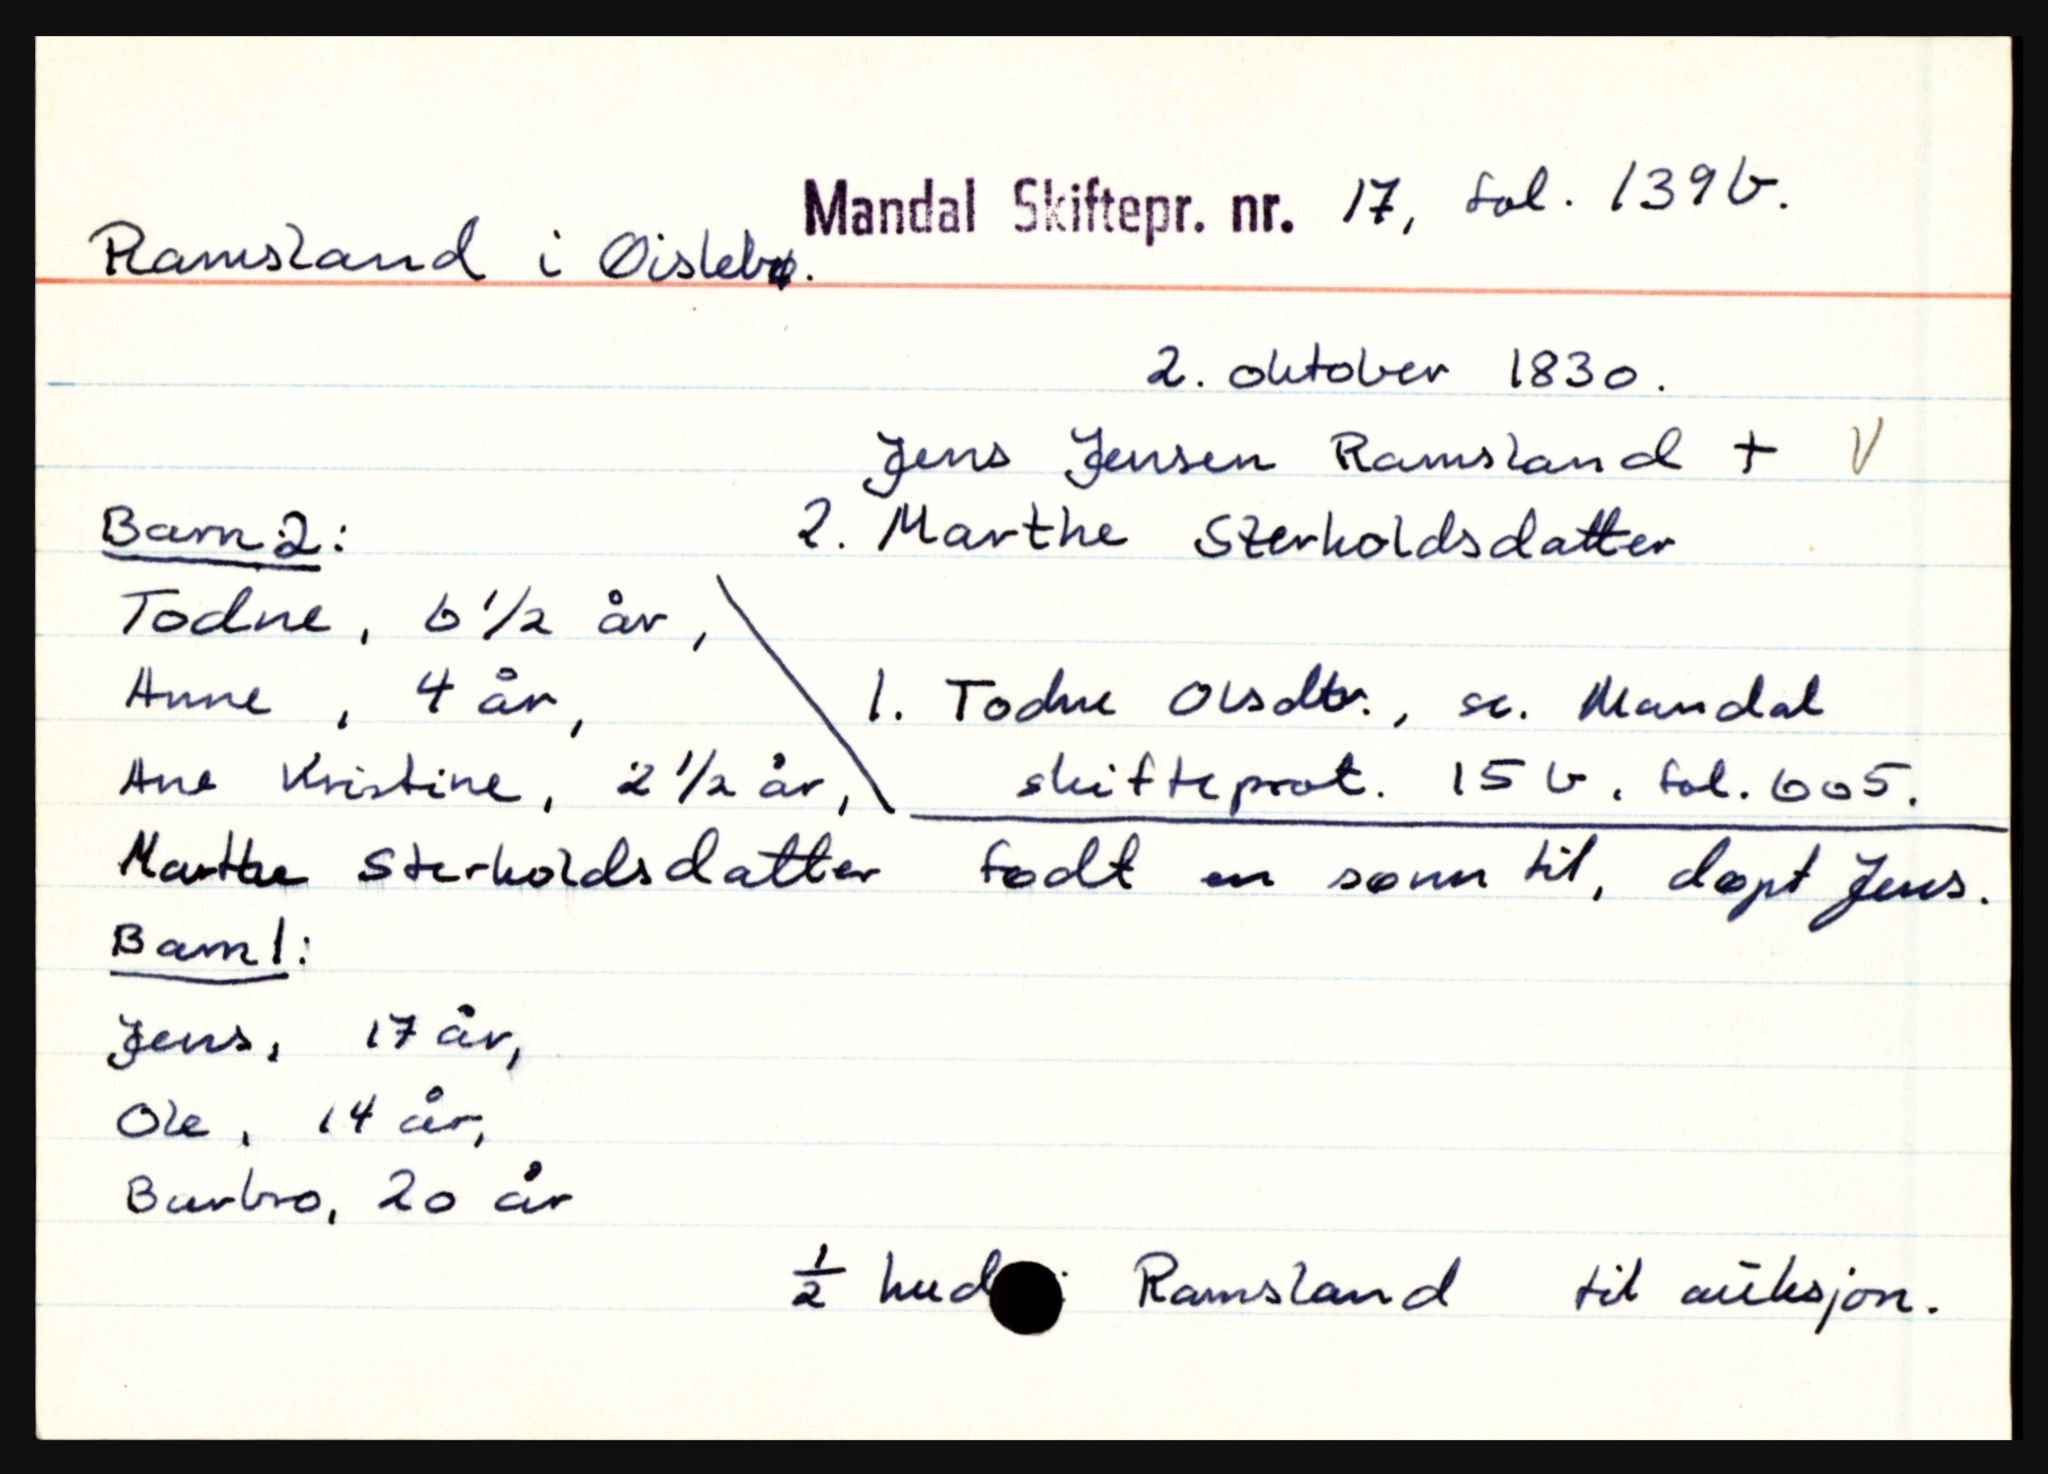 Mandal Skiftepr. nr. 17, fol. 139b.
Ramsland i Øislebø.
2. oktober 1830.
Jens Jensen Ramsland + V
2. Marthe Sterkoldsdatter
Barn 2:
Todne, 6 1/2 år,
Anne, 4 år,
Ane Kristine, 2 1/2 år,
1. Todne Olsdtr., se. Mandal
skifteprot. 15 b, fol. 605.
Marthe Sterkoldsdatter født en sønn til, døpt Jens.
Barn 1:
Jens, 17 år,
Ole, 14 år,
Barbro, 20 år
1/2 hud i Ramsland til auksjon.